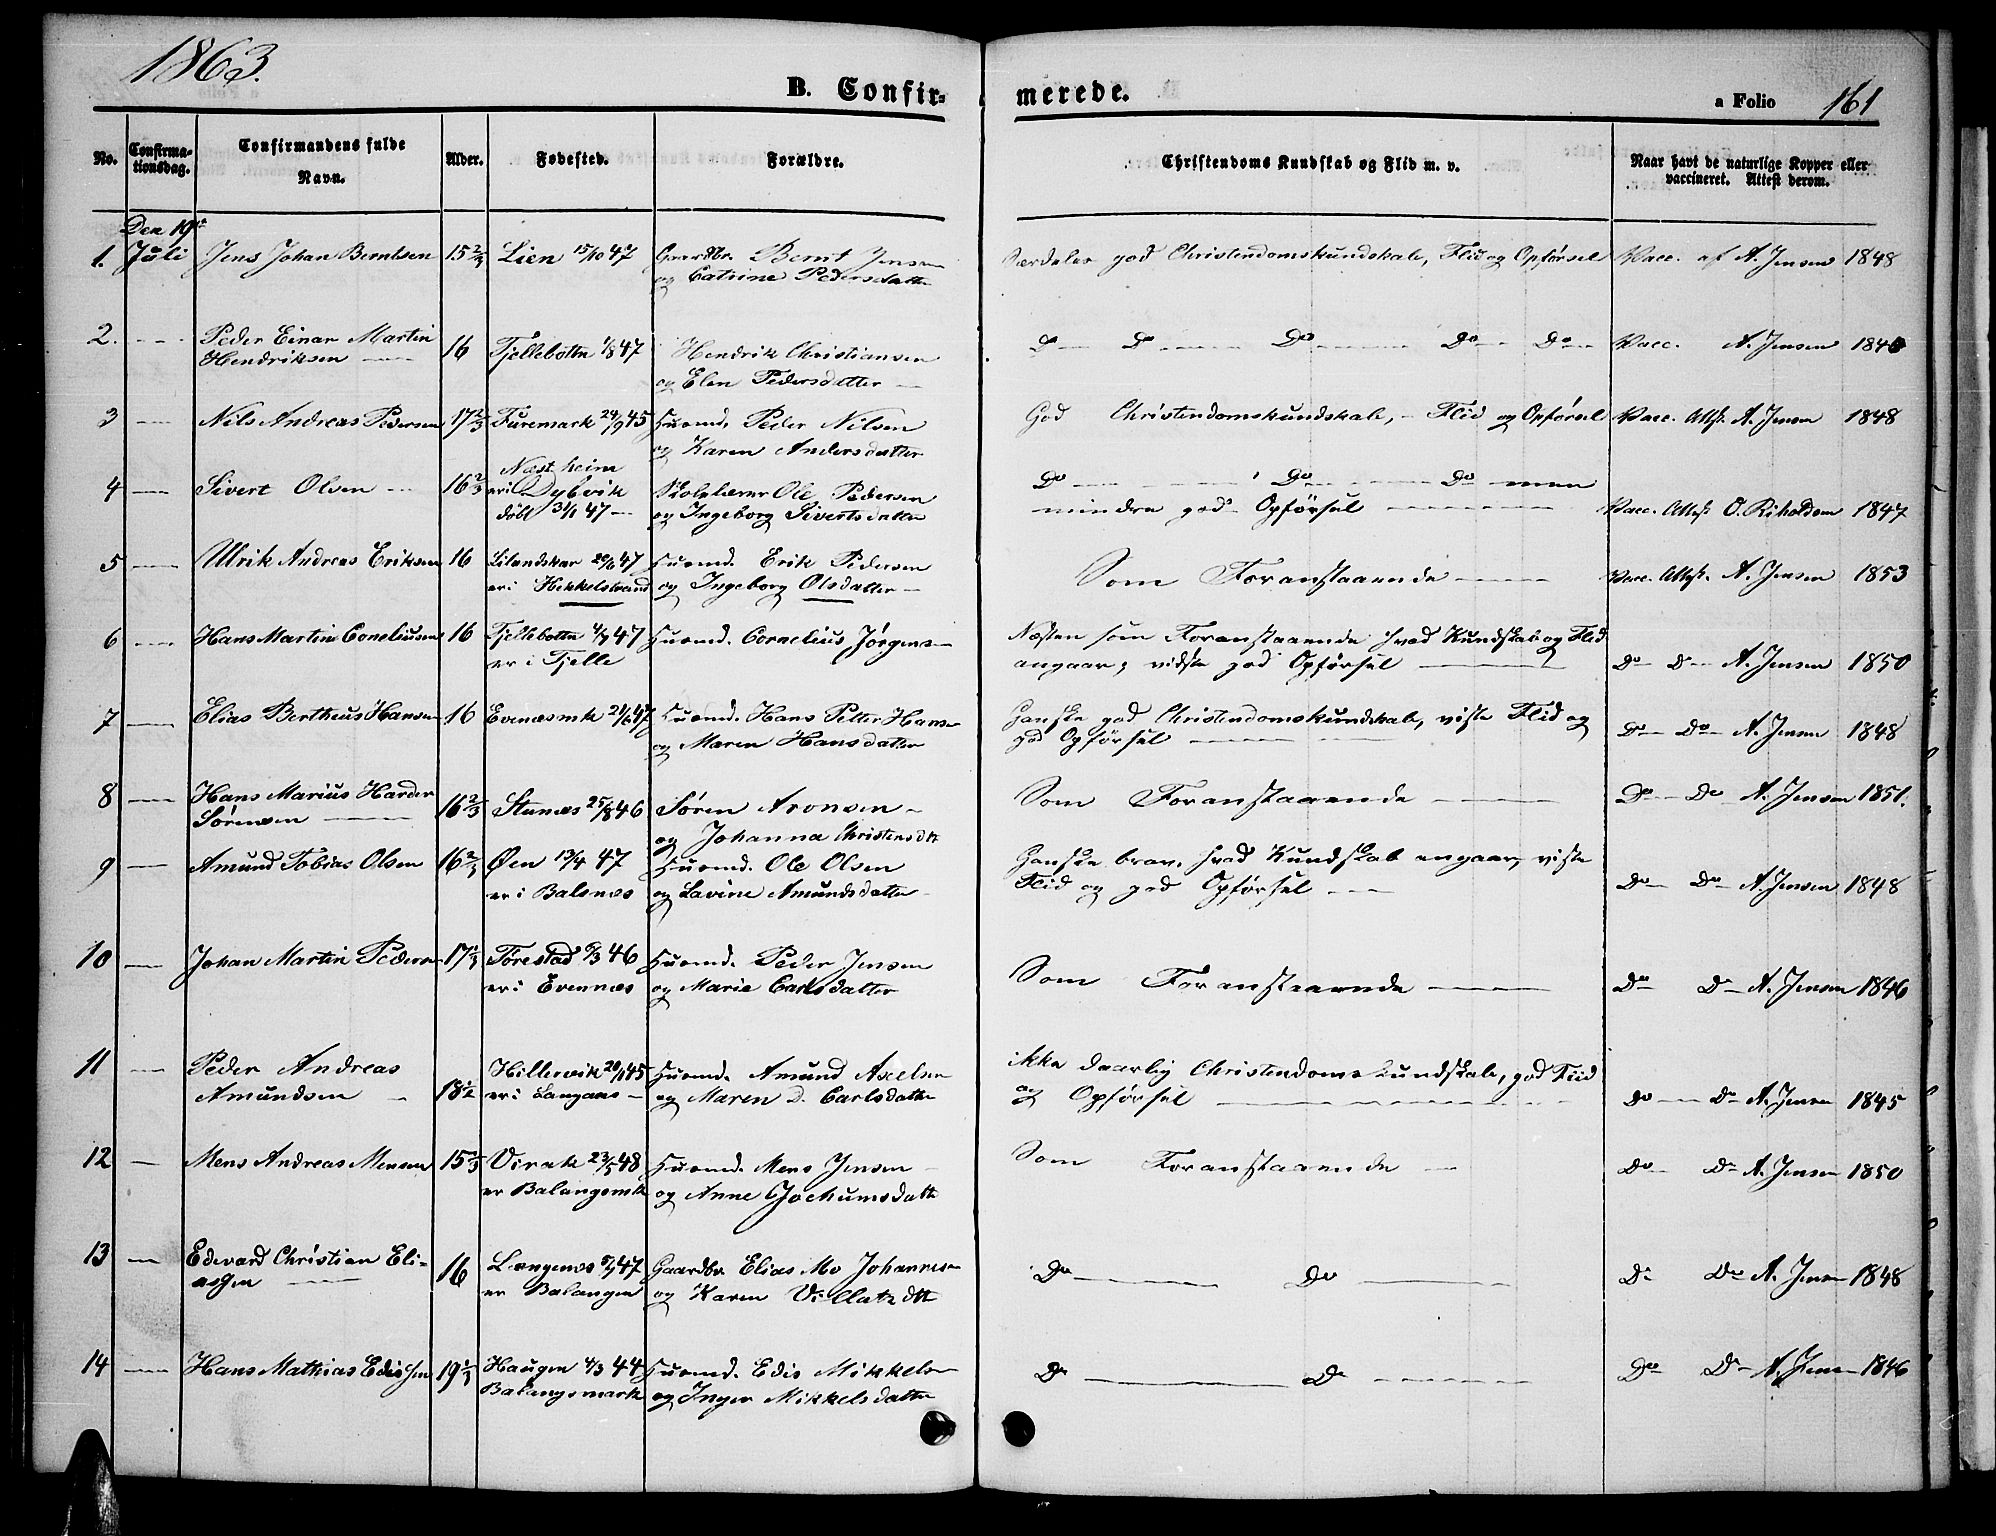 1863.
B. Confir-
merede.
a Folio 161
No. Confirma-tionsdag. Confirmandens fulde Navn. Alder. Fødested. Forældre. Christendoms Kundskab og Flid m. v. Naar havt de naturlige Kopper eller vaccineret. Attest derom.
Den 19de
1. Juli Jens Johan Berntsen 15 2/3 Lien 15/10 47 Gaardbr. Bernt Jensen Særdeles god Christendomskundskab, Flid og Opførsel Vacc. af A. Jensen 1848
og Catrine Pedersdatter
2. Peder Einar Martin
Hendriksen 16 Tjellebotn 1/8 47 Hendrik Christiansen Do Do Do Do Do Vacc. A. Jensen
og Elen Pedersdatter
3 Nils Andreas Pedersen 17 2/3 Furemark 24/9 45 Huusmd. Peder Nilsen God Christendomskundskab, Flid og Opførsel Vacc. Attest A. Jensen 1848
og Karen Andersdatter
4 Sivert Olsen 16 2/3 Næstheim Do Do Do men
er i Dybvik Skolelærer Ole Pedersen mindre god Opførsel Vacc. Attest O. 1847
døbt 31/1 47 og Ingeborg Sivertsdatter
5 Ulrik Andreas Eriksen 16 47 Huusmd. Erik Pedersen Som Foranstaaende Vacc. Attest. A. Jensen 1853
er i Hekkelstrand og Ingeborg Olsdatter
6 Hans Martin Coneliusen 16 Tjellebotn 4/7 47 Huusmd. Cornelius Jørgens Næsten som Foranstaaende hvad Kundskab og Flid
er i Tjelle angaar; vidste god Opførsel Do Do A. Jensen 1850
7 Elias Bertheus Hansen 16 Evenæsmk 21/6 47 Huusmd. Hans Petter Hans Ganske god Christendomskundskab, viste Flid og
og Maren Hansdatter god Opførsel Do Do A. Jensen 1848
8 Hans Marius Harder
Sørensen 16 2/3 Stunæs 25/8 46 Søren Aronsen Som Foranstaaende Do Do A. Jensen 1851.
og Johanna Christensdtr
9 Amund Tobias Olsen 16 2/3 Øen 13/4 47 Huusmd. Ole Olsen Ganske brav, hvad Kundskab angaar, viste
er i Balsnes og Lavine Amundsdatter Flid og god Opførsel Do Do A. Jensen 1848
10 Johan Martin Pedersen 17 1/3 Forestad 46 Huusmd. Peder Jensen Som Foranstaaende Do Do A. Jensen 1846
er i Evennæs og Marie Carlsdatter
11 Peder Andreas Hillervik 45 Huusmd. Amund Axelsen ikke daarlig Christendomskundskab, god Flid
Amundsen 18 1/2 er i Langnæs og Maren D. Carlsdatter og Opførsel Do Do A. Jensen 1845
12 Mens Andreas Mensen 15 Virak 23/5 48 Huusmd. Mens Jensen Som Foranstaaende Do Do A. Jensen 1850
er Balangsmk og Anne Jochumsdatter
13 Edevard Christian Eli-
assen 16 Langenæs 47 Gaardbr. Elias Mo Johannesen Do Do Do Do A. Jensen 1848
er Balangen og Karen dtr
14 Hans Mathias Edissen 19 1/3 Haugen 4/3 44 Huusmd. Edis Mikkelsen Do Do Do Do A. Jensen 1846
Balangsmark og Inger Mikkelsdatter